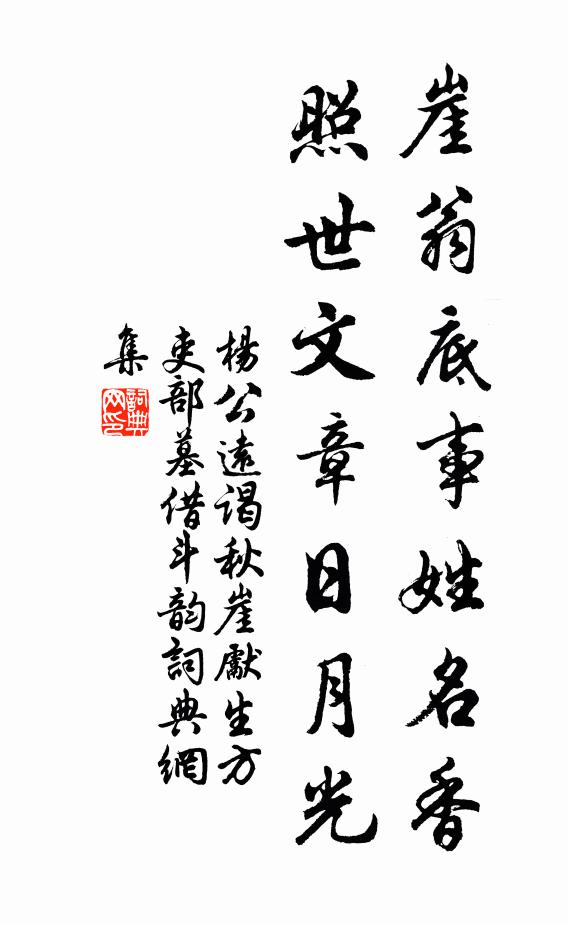 崖翁底事姓名香
照世文章日月光
楊公遠謁秋崖獻生方
吏部墓借斗韵詞典網
集
詞典
网印